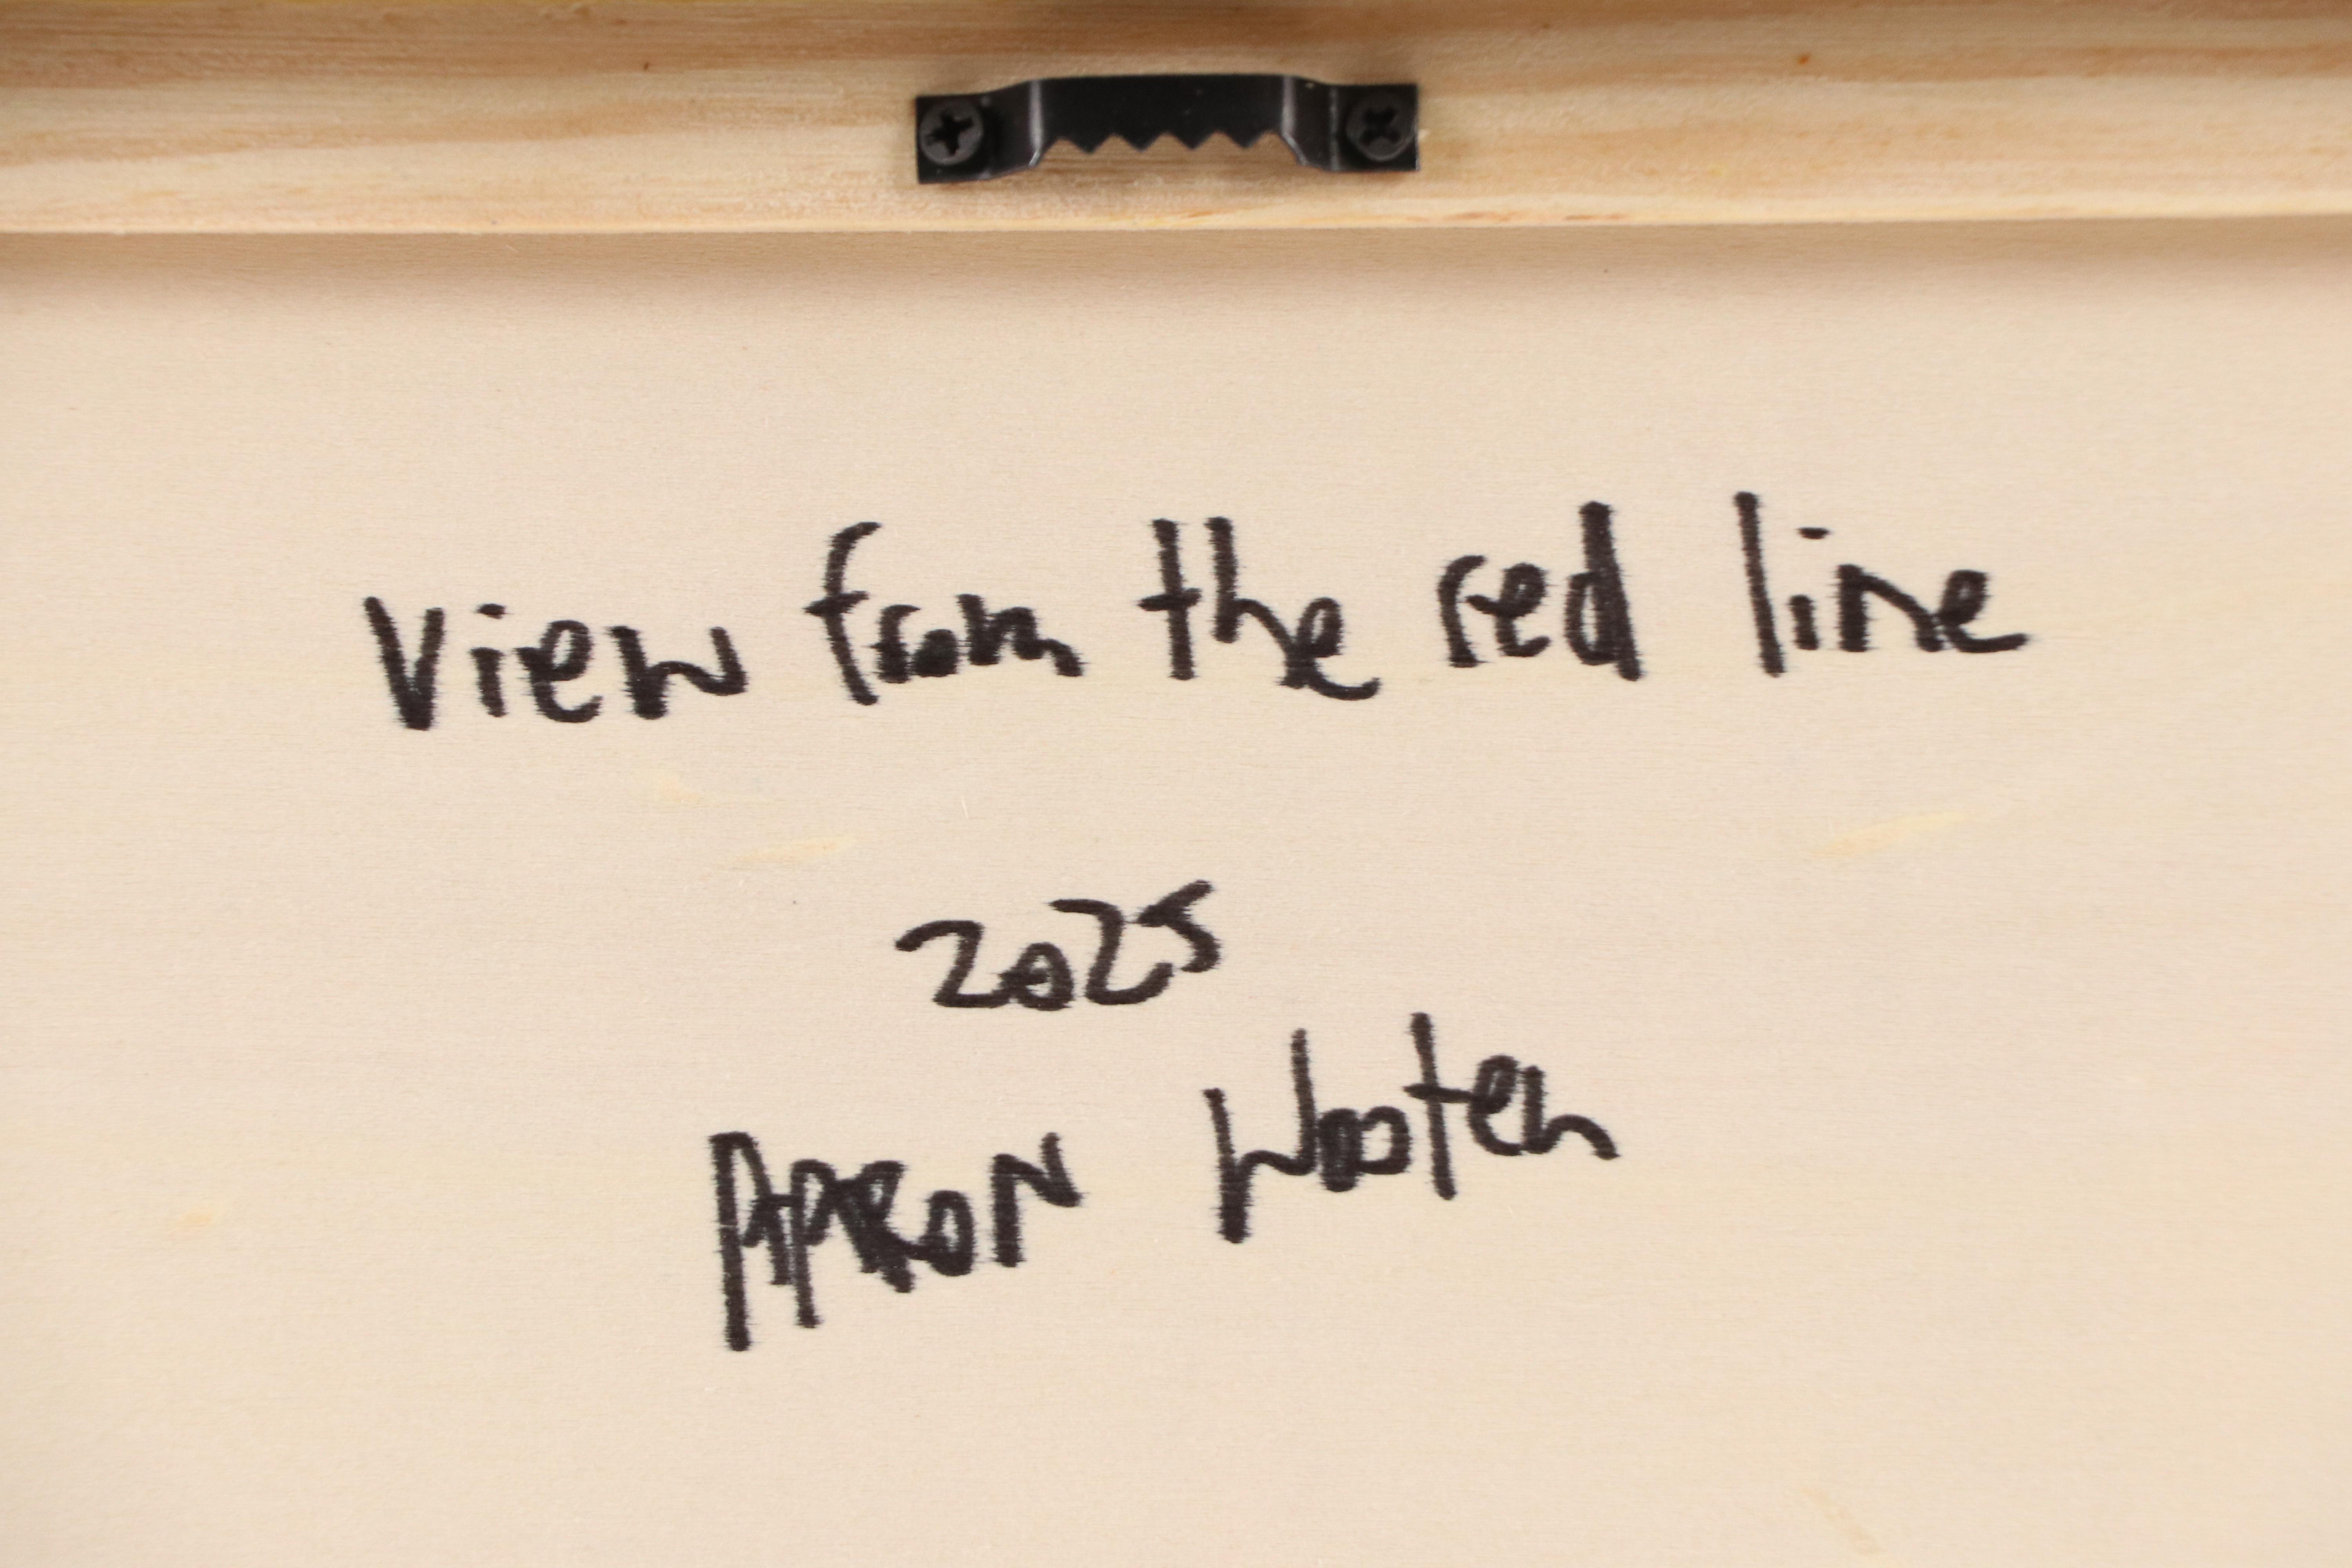 View from the red line
2025
AARON Wooten